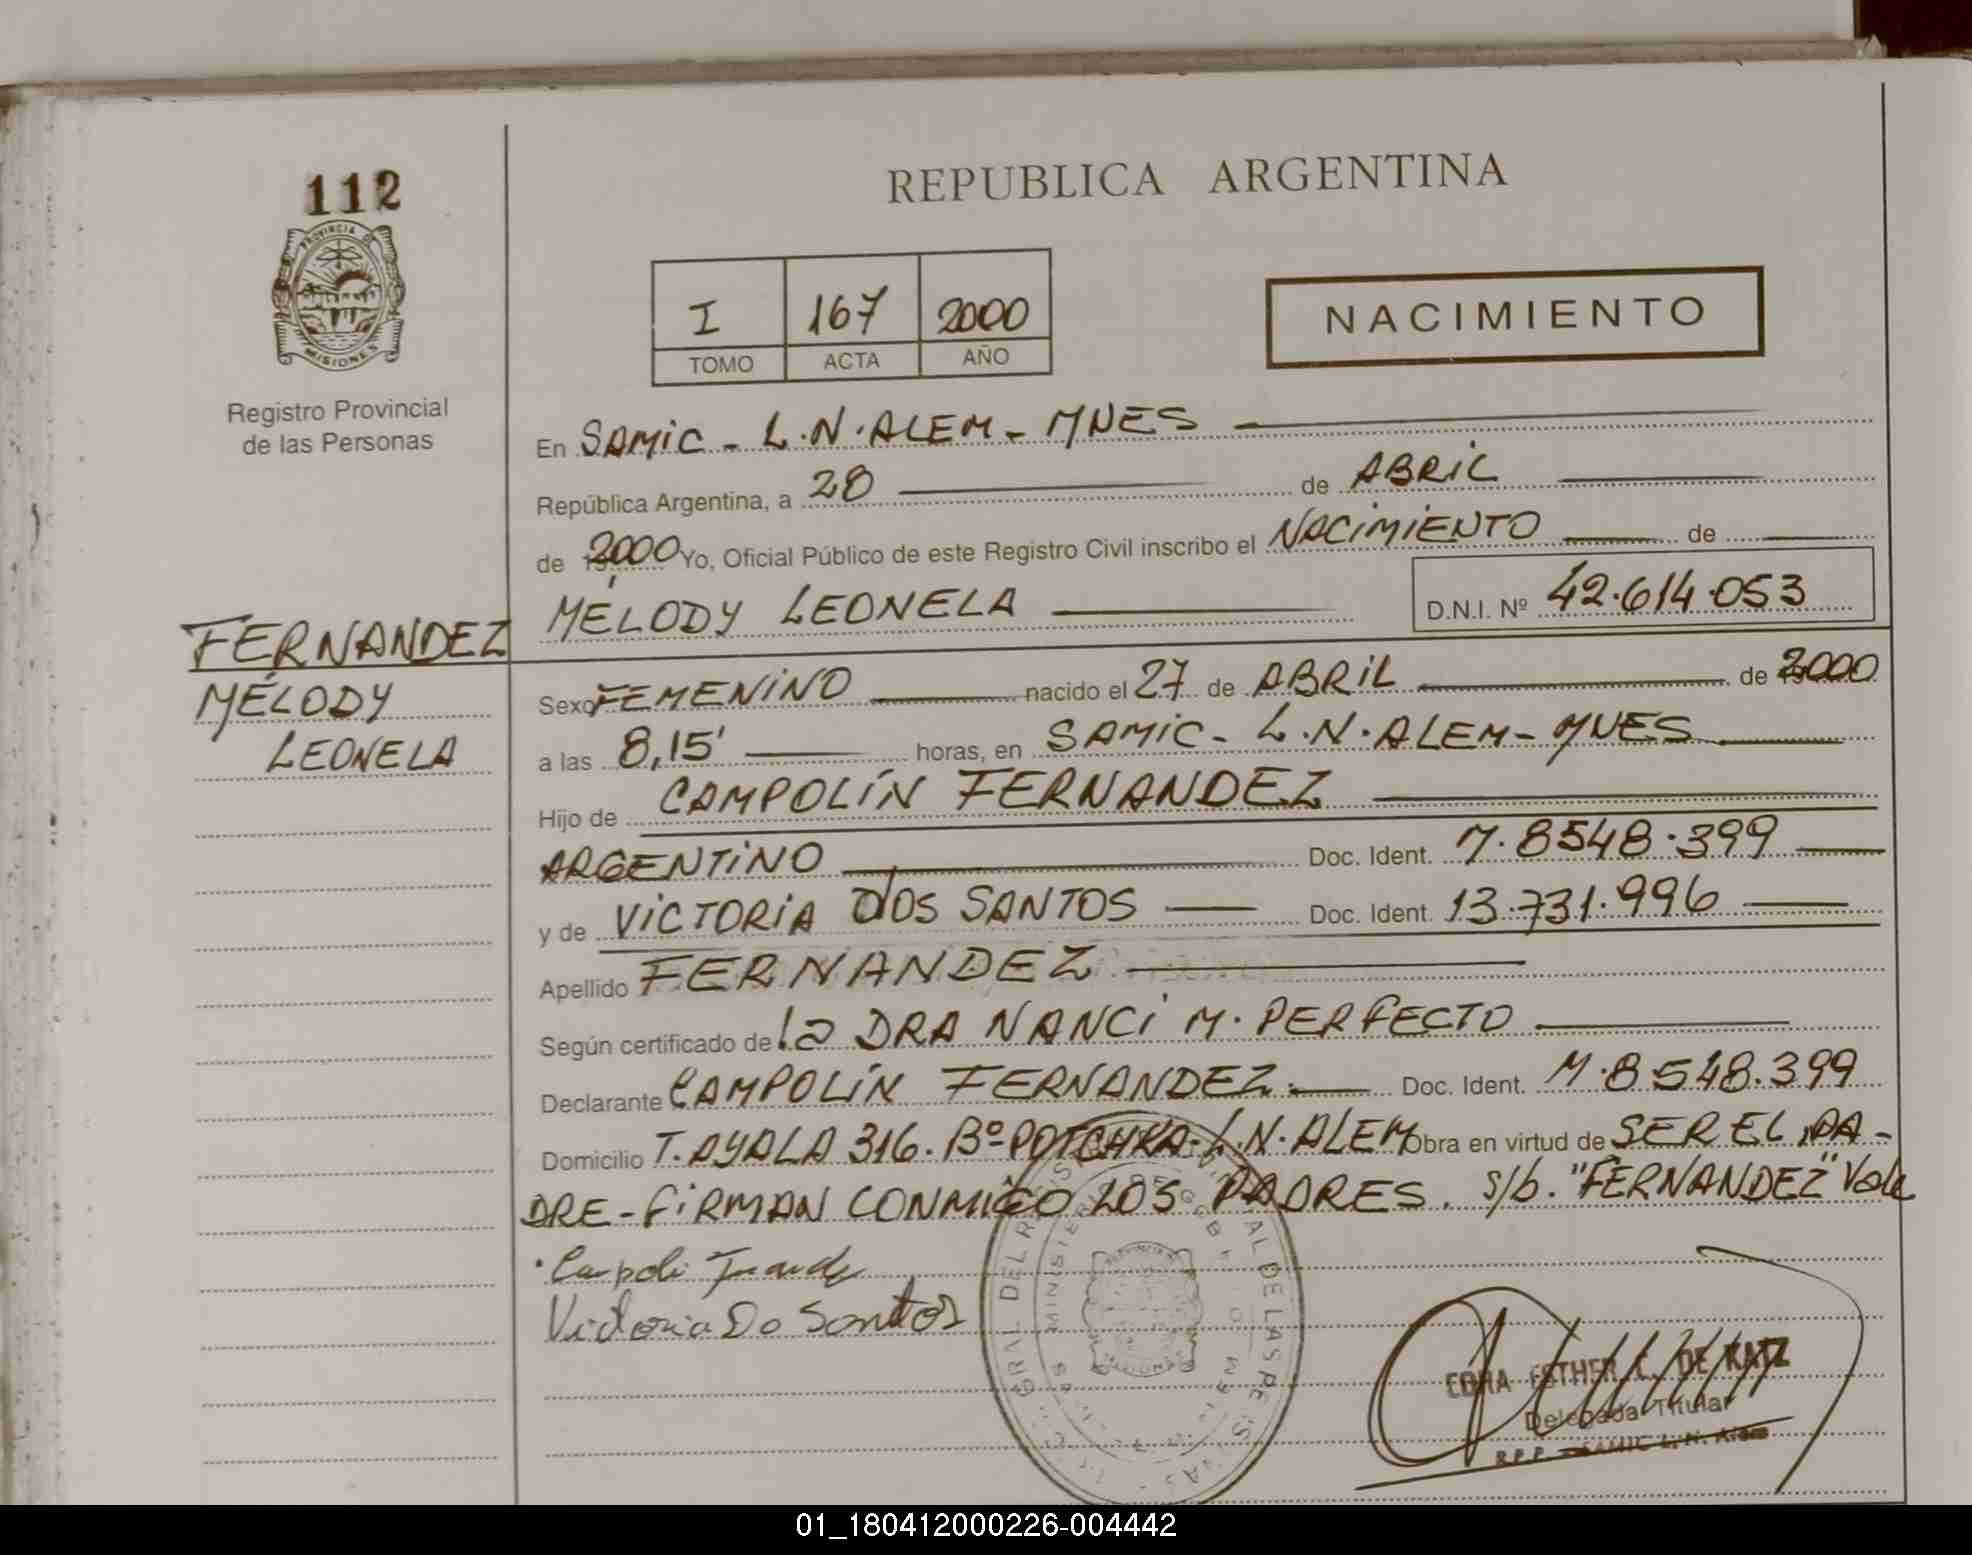 112
PROVINCIA DE
MISIONES
Registro Provincial
de las Personas
REPUBLICA ARGENTINA
I 167 2000
TOMO ACTA AÑO
NACIMIENTO
En SAMIC - L.N. ALEM - MNES
República Argentina, a 28 de ABRIL
de 2000 Yo, Oficial Público de este Registro Civil inscribo el NACIMIENTO de
MÉLODY LEONELA D.N.I. Nº 42.614.053
FERNANDEZ
MÉLODY
LEONELA
Sexo FEMENINO nacido el 27 de ABRIL de 2000
a las 8,15' horas, en SAMIC - L.N. ALEM - MNES
Hijo de CAMPOLÍN FERNANDEZ
ARGENTINO Doc. Ident. M. 8548.399
y de VICTORIA DOS SANTOS Doc. Ident. 13.731.996
Apellido FERNANDEZ
Según certificado de la DRA NANCI M. PERFECTO
Declarante CAMPOLÍN FERNANDEZ Doc. Ident. M. 8548.399
Domicilio T. AYALA 316. Bº POTCHKA - L.N. ALEM Obra en virtud de SER EL PA-
DRE - FIRMAN CONMIGO LOS PADRES. s/b. "FERNANDEZ" Vale
Victoria Do Santos
ESTHER C. DE KATZ
Delegada Titular
R.P.P. SAMIC L. N. Alem
01_180412000226-004442